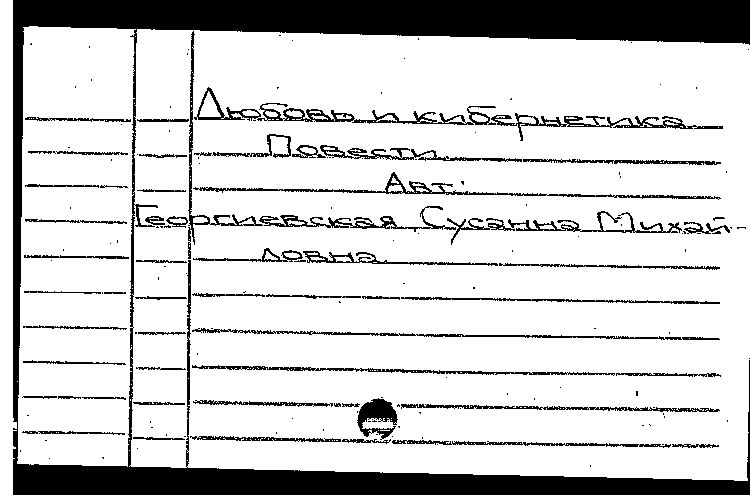 Любовь и кибернетика
Повести
Авт.:
Георгиевская Сусанна Михай-
ловна